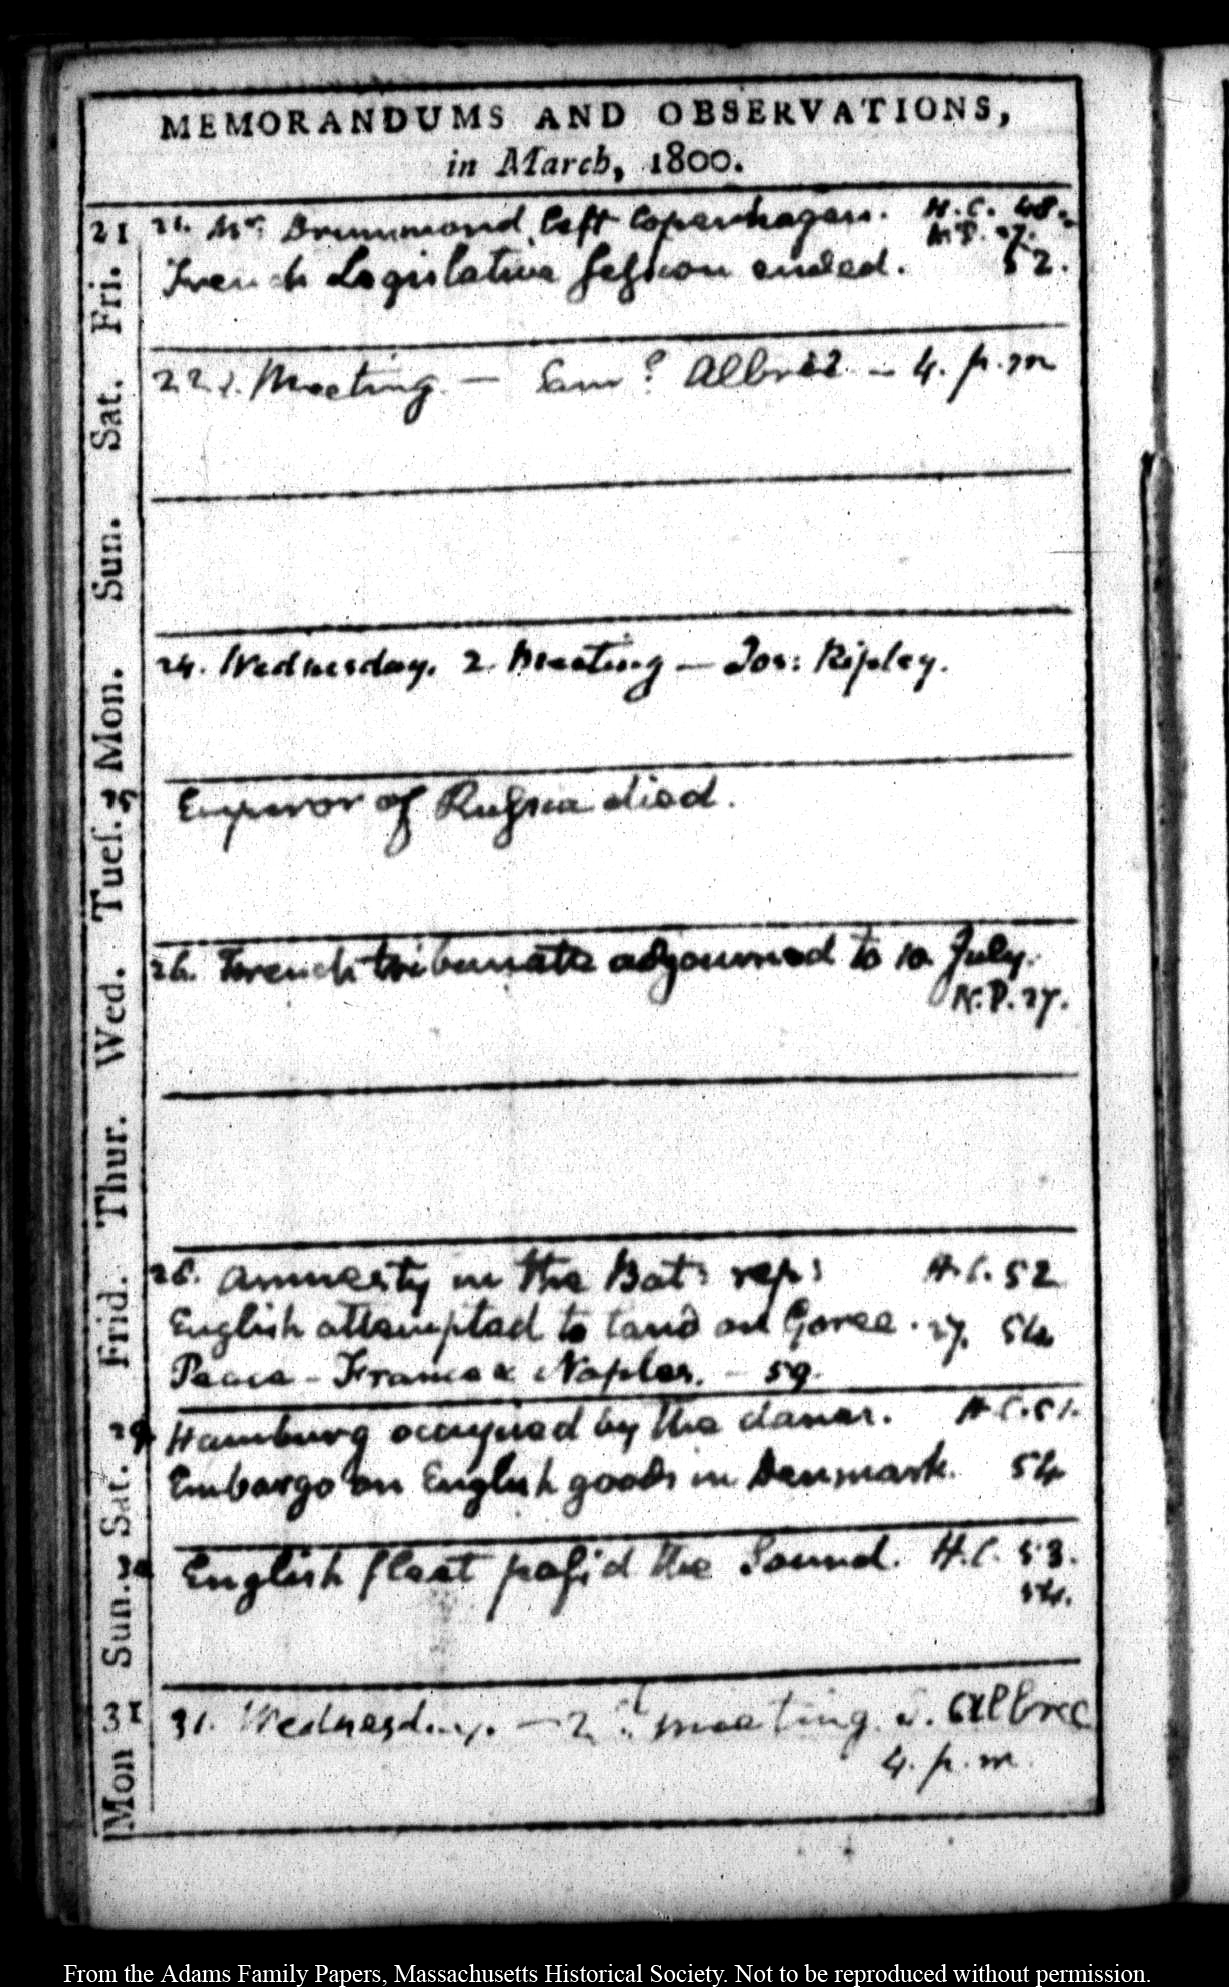 MEMORANDUMS AND OBSERVATIONS,
in March, 1800.
21 21. Mr. Drummond left Copenhagen. H.C. 48.
N.P. 27.
Fri. French Legislative Session ended. 52.
Sat. 22. Meeting — Sam.l Albree — 4. p.m
Sun.
Mon. 24. Wednesday. 2. Meeting — Jos: Ripley.
Tues. 25 Emperor of Russia died.
Wed. 26. French tribunate adjourned to 10 July.
N.P. 27.
Thur.
Frid. 28. Amnesty in the Bat: rep: H.C. 52
English attempted to land on Goree. 27. 54
Peace — France & Naples. — 59.
Sat. 29 Hamburg occupied by the danes. H.C. 51.
Embargo on English goods in Denmark. 54
Sun. 30 English fleet pass'd the Sound. H.C. 53.
54.
Mon 31 31. Wednesday. — 2.d meeting. S. Albree
4. p.m.
From the Adams Family Papers, Massachusetts Historical Society. Not to be reproduced without permission.